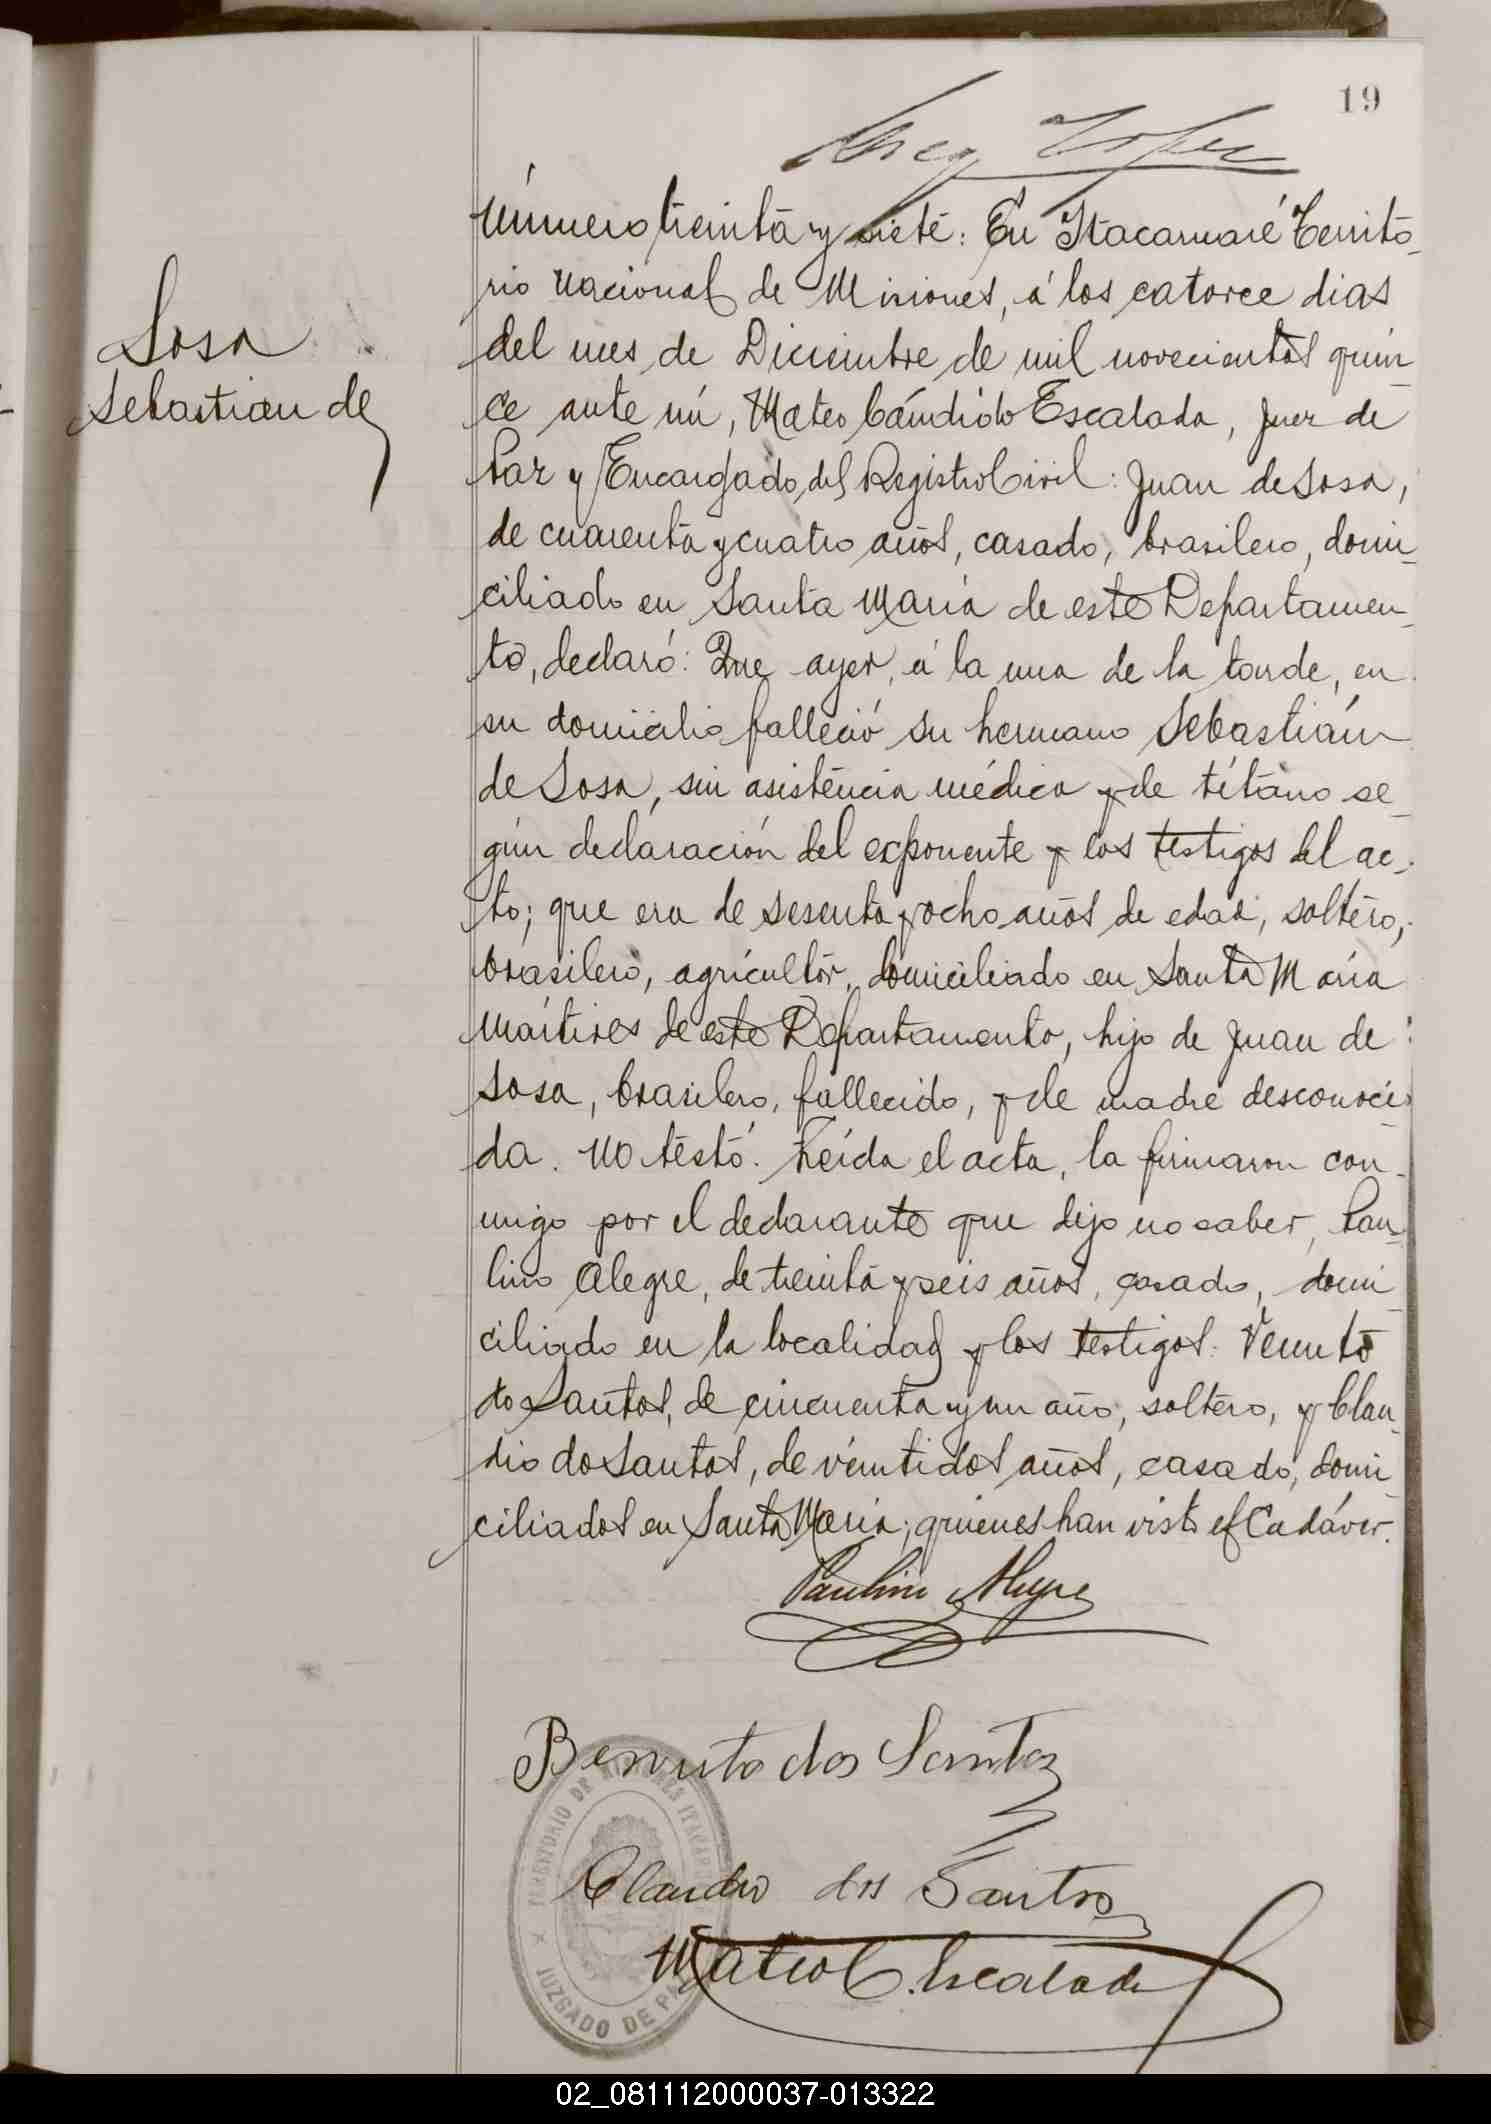 19
Número treinta y siete: En Itacaruaré Territo-
rio Nacional de Misiones, á los catorce dias
del mes de Diciembre de mil novecientos quin-
ce ante mí, Mateo Cándido Escalada, Juez de
Paz y Encargado del Registro Civil: Juan de Sosa,
de cuarenta y cuatro años, casado, brasilero, domi-
ciliado en Santa María de este Departamen-
to, declaró: Que ayer, á la una de la tarde, en
su domicilio falleció su hermano Sebastián
de Sosa, sin asistencia médica y de tétano se-
gún declaración del exponente y los testigos del ac-
to; que era de sesenta y ocho años de edad, soltero,
brasilero, agricultor, domiciliado en Santa María
Mártires de este Departamento, hijo de Juan de
Sosa, brasilero, fallecido, y de madre desconoci-
da. No testó. Leída el acta, la firmaron con-
migo por el declarante que dijo no saber, Pau-
lino Alegre, de treinta y seis años, casado, domi-
ciliado en la localidad y los testigos: Venuto
do Santos, de cincuenta y un año, soltero, y Clau-
dio do Santos, de veintidos años, casado, domi-
ciliados en Santa María; quienes han visto el Cadáver.
Sosa
Sebastian de
Paulino Alegre
Benuto dos Santos
Claudio dos Santos
Mateo C. Escalada
TERRITORIO DE MISIONES ITACAR
JUZGADO DE PAZ
02_081112000037-013322